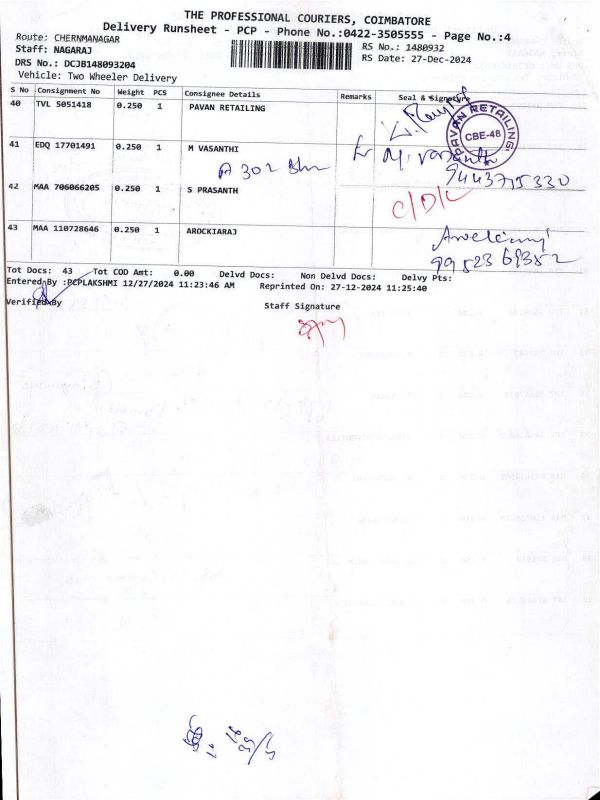 THE PROFESSIONAL COURIERS, COIMBATORE
Delivery Runsheet - PCP - Phone No.:0422-3505555 - Page No.:4
Route: CHERNMANAGAR
RS No.: 1480932
Staff: NAGARAJ
RS Date: 27-Dec-2024
DRS No.: DCJB148093204
Vehicle: Two Wheeler Delivery
S No Consignment No Weight PCS Consignee Details Remarks Seal & Signature
40 TVL 5051418 0.250 1 PAVAN RETAILING
PAVAN RETAILING
CBE-48
41 EDQ 17701491 0.250 1 M VASANTHI
M. Vasanthi
A 302
9443715330
42 MAA 706066205 0.250 1 S PRASANTH
C/D/L
43 MAA 110728646 0.250 1 AROCKIARAJ
9952369352
Tot Docs: 43 Tot COD Amt: 0.00 Delvd Docs: Non Delvd Docs: Delvy Pts:
Entered By :PCPLAKSHMI 12/27/2024 11:23:46 AM Reprinted On: 27-12-2024 11:25:40
Verified By
Staff Signature